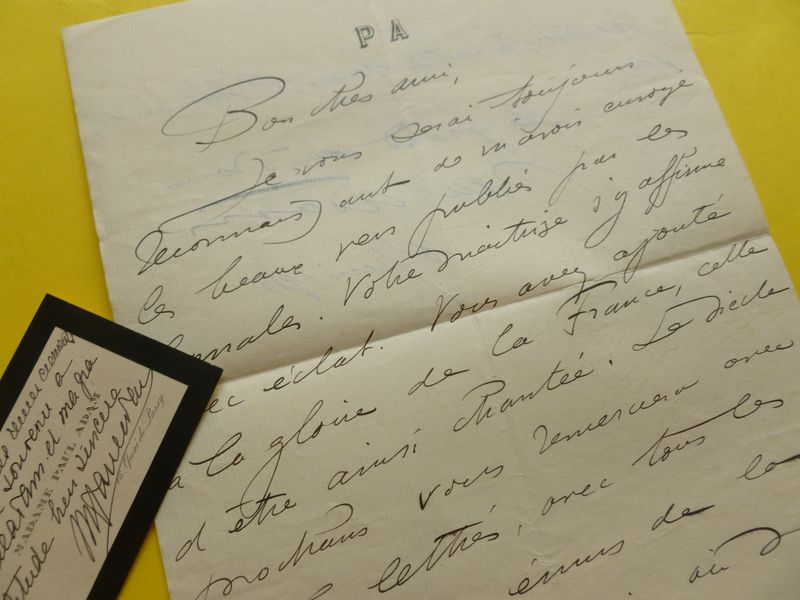 P A
Bon très ami,
Je vous serai toujours
reconnaissant de m'avoir envoyé
les beaux vers publiés par les
Annales. Votre maîtrise s'y affirme
avec éclat. Vous avez ajouté
à la gloire de la France, celle
d'être ainsi chantée. Le siècle
prochain vous remerciera avec
lettrés, avec tous les
émus de la
où
souvenu à
et ma gra
MADAME PAUL ADAM
titude bien sincère
Quai de Passy